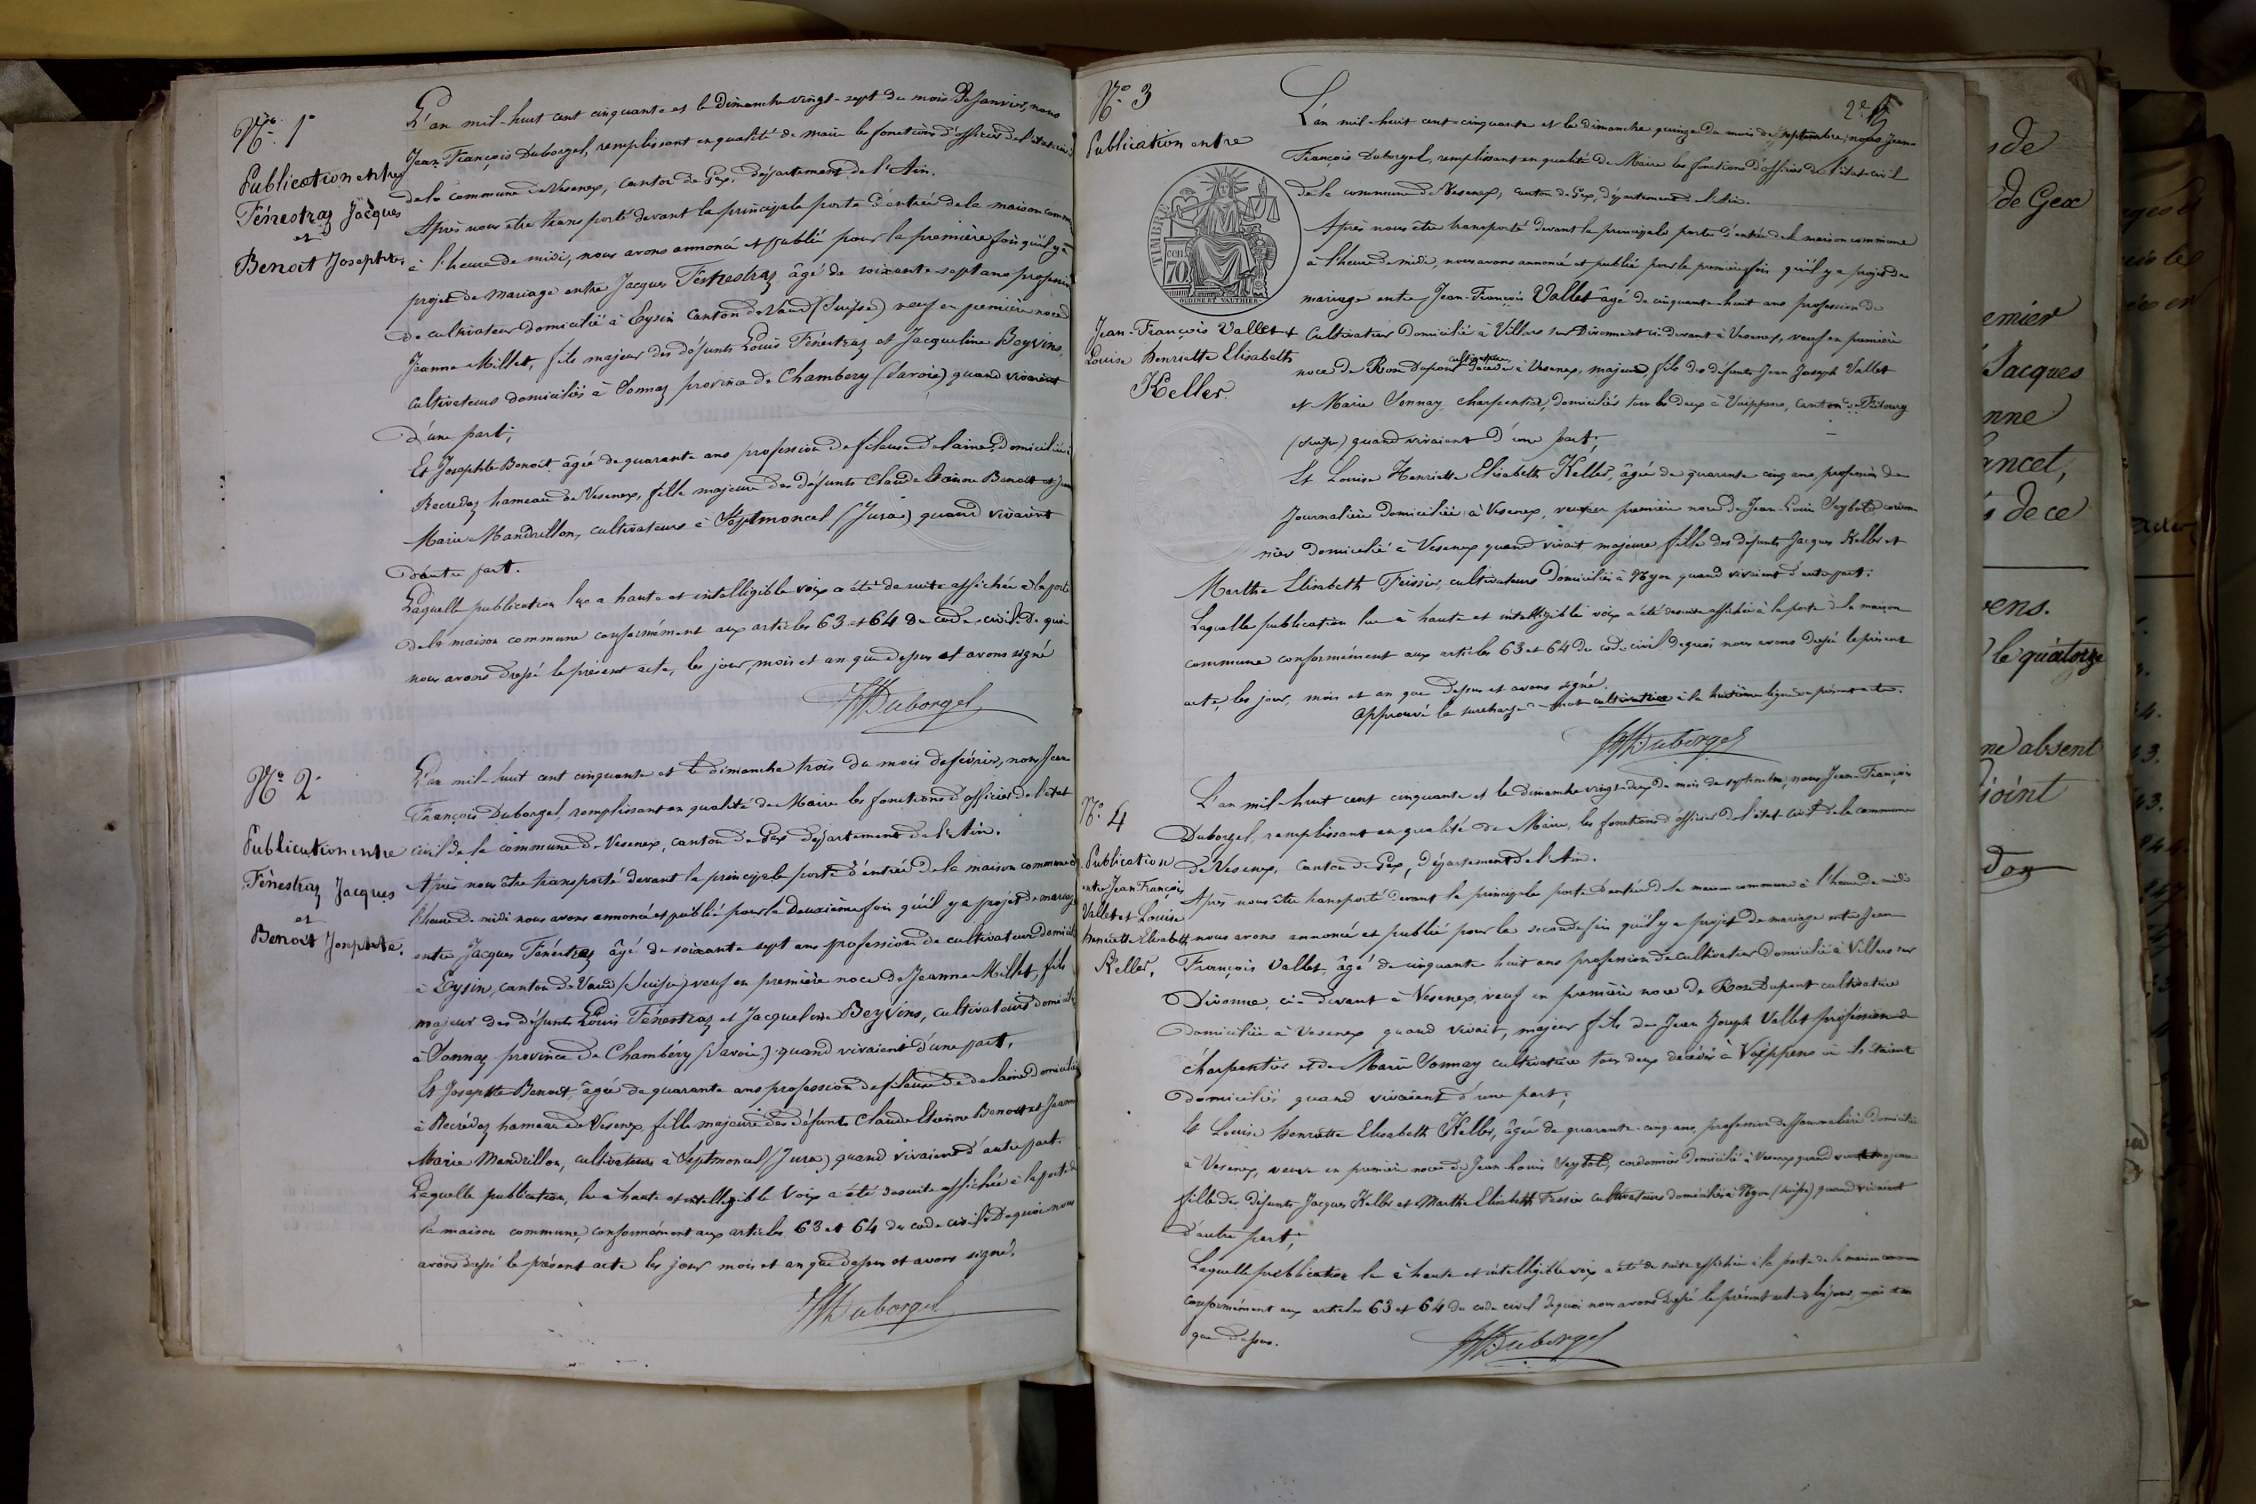 N.o 1.
Publication entre
Fénestraz Jacques
et
Benoit Josephte.
L'an mil-huit cent cinquante et le Dimanche vingt-sept du mois de Janvier, nous
Jean François Duborgel, remplissant en qualité de maire les fonctions d'officier de l'état civil
de la commune de Vesenex, canton de Gex, département de l'Ain.
Après nous être transporté devant la principale porte d'entrée de la maison commune
à l'heure de midi, nous avons annoncé et publié pour la première fois qu'il y a
projet de mariage entre Jacques Fénestraz âgé de soixante-sept ans profession
de cultivateur domicilié à Eysin Canton de Vaud (Suisse) veuf en première noce de
Jeanne Millet, fils majeur des défunts Louis Fénestraz et Jacqueline Beyvins,
cultivateurs domiciliés à Sonnaz province de Chambery (Savoie) quand vivaient
d'une part;
Et Josephte Benoit âgée de quarante ans profession de fileuse de laine, domiciliée à
Recredoz hameau de Vesenex, fille majeure des défunts Claude Etienne Benoit et Jeanne
Marie Mandrillon, cultivateurs à Septmoncel (Jura) quand vivaient
d'autre part.
Laquelle publication lue a haute et intelligible voix a été de suite affichée à la porte
de la maison commune conformément aux articles 63 et 64 du code civil. De quoi
nous avons dressé le présent acte, les jour, mois et an que dessus et avons signé
JF Duborgel
N.o 2.
Publication entre
Fénestraz Jacques
et
Benoit Josephte.
L'an mil-huit cent cinquante et le dimanche trois du mois de février, nous Jean
François Duborgel, remplissant en qualité de Maire les fonctions d'officier de l'état
civil de la commune de Vesenex, canton de Gex département de l'Ain.
Après nous être transporté devant la principale porte d'entrée de la maison commune à
l'heure de midi nous avons annoncé et publié pour la deuxième fois qu'il y a projet de mariage
entre Jacques Fénestraz âgé de soixante sept ans profession de cultivateur domicilié
à Eysin, canton de Vaud (Suisse) veuf en première noce de Jeanne Millet, fils
majeur des défunts Louis Fénestraz et Jacqueline Beyvins, cultivateurs domiciliés
à Sonnaz province de Chambéry (Savoie) quand vivaient d'une part,
Et Josephte Benoit, âgée de quarante ans profession de fileuse de laine domiciliée
à Recrédoz hameau de Vesenex fille majeure des défunts Claude Etienne Benoit et Jeanne
Marie Mandrillon, cultivateurs à Septmoncel (Jura) quand vivaient d'autre part.
Laquelle publication, lue a haute et intelligible voix a été de suite affichée à la porte de
la maison commune, conformément aux articles 63 et 64 du code civil. De quoi nous
avons dressé le présent acte les jour mois et an que dessus et avons signé.
JF Duborgel
N.o 3
Publication entre
TIMBRE
CEN 70
Jean-François Vallet et
Louise Henriette Elisabeth
Keller.
2e
L'an mil-huit cent-cinquante et le dimanche quinze du mois de septembre, nous Jean-
François Duborgel, remplissant en qualité de Maire les fonctions d'officier de l'état-civil
de la commune de Vesenex, canton de Gex, département de l'Ain.
Après nous être transporté devant la principale porte d'entrée de la maison commune
à l'heure de midi, nous avons annoncé et publié pour la première fois qu'il y a projet de
mariage entre Jean-François Vallet âgé de cinquante-huit ans profession de
cultivateur domicilié à Villars sur Divonne et ci-devant à Vesenex, veuf en première
noce de Rose Dupont cultivatrice décédée à Vesenex, majeur, fils des défunts Jean Joseph Vallet
et Marie Sonnay charpentier, domiciliés tous les deux à Vuippens, canton de Fribourg
(Suisse) quand vivaient d'une part;
Et Louise Henriette Elisabeth Keller, âgée de quarante cinq ans, profession de
Journalière domiciliée à Vesenex, veuve en première noce de Jean-Louis Seybold, cordon-
nier domicilié à Vesenex quand vivait majeure fille des défunts Jacques Keller et
Marthe Elisabeth Feissier, cultivateurs domiciliés à Nyon quand vivaient d'autre part;
Laquelle publication lue à haute et intelligible voix a été de suite affichée à la porte de la maison
commune conformément aux articles 63 et 64 du code civil de quoi nous avons dressé le présent
acte, les jour, mois et an que dessus et avons signé.
Approuvé la surcharge mot cultivatrice à la huitième ligne du présent acte.
JF Duborgel
N.o 4
Publication
entre Jean François
Vallet et Louise
Henriette Elisabeth
Keller.
L'an mil-huit cent cinquante et le dimanche vingt-deux du mois de septembre, nous Jean-François
Duborgel, remplissant en qualité de Maire, les fonctions d'officier de l'état-civil de la commune
de Vesenex, canton de Gex, département de l'Ain.
Après nous être transporté devant la principale porte d'entrée de la maison commune à l'heure de midi
nous avons annoncé et publié pour la seconde fois qu'il y a projet de mariage entre Jean
François Vallet, âgé de cinquante huit ans profession de cultivateur domicilié à Villars sur
Divonne, ci-devant à Vesenex, veuf en première noce de Rose Dupont cultivatrice
domiciliée à Vesenex quand vivait, majeur fils de Jean Joseph Vallet profession de
charpentier et de Marie Sonnay cultivatrice tous deux décédés à Vuippens où ils étaient
domiciliés quand vivaient d'une part;
Et Louise Henriette Elisabeth Keller, âgée de quarante-cinq ans, profession de Journalière domiciliée
à Vesenex, veuve en première noce de Jean Louis Seybold, cordonnier domicilié à Vesenex quand vivait majeure
fille des défunts Jacques Keller et Marthe Elisabeth Fessier cultivateurs domiciliés à Nyon (Suisse) quand vivaient
d'autre part;
Laquelle publication lue à haute et intelligible voix a été de suite affichée à la porte de la maison commune
conformément aux articles 63 et 64 du code civil de quoi nous avons dressé le présent acte les jour, mois et an
que dessus.
JF Duborgel
de
de Gex
emier
Jacques
nne
ancet,
de ce
vens.
le quatorze
ne absent
joint